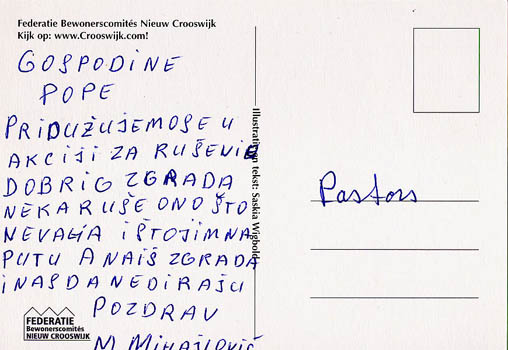 Federatie Bewonerscomités Nieuw Crooswijk
Kijk op: www.Crooswijk.com!
GOSPODINE
POPE
PRIDUŽUJEMO SE U
AKCIJI ZA RUŠENIE
DOBRIG ZGRADA
NEKA RUŠE ONO ŠTO
NEVALJA I ŠTO JIM NA
PUTU A NAIŠ ZGRADA
I NAS DA NEDIRAJU
POZDRAV
M MIHAJLOVIĆ
Illustratie en tekst: Saskia Wigbold
Pastors
FEDERATIE
Bewonerscomités
NIEUW CROOSWIJK